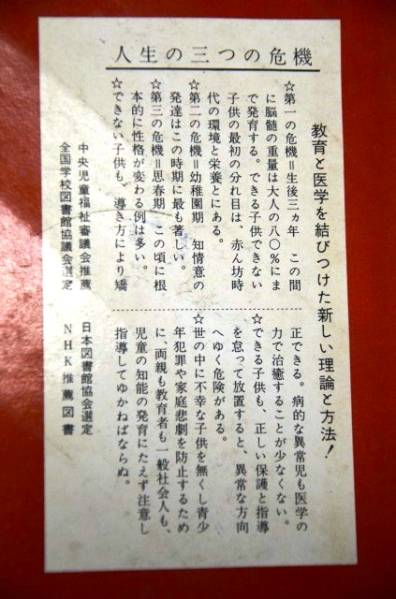 人生の三つの危機
教育と医学を結びつけた新しい理論と方法！
☆第一の危機＝生後三ヵ年　この間
に脳髄の重量は大人の八〇％にま
で発育する。できる子供できない
子供の最初の分れ目は、赤ん坊時
代の環境と栄養とにある。
☆第二の危機＝幼稚園期　知情意の
発達はこの時期に最も著しい。
☆第三の危機＝思春期　この頃に根
本的に性格が変わる例は多い。
☆できない子供も、導き方により矯
正できる。病的な異常児も医学の
力で治癒することが少なくない。
☆できる子供も、正しい保護と指導
を怠って放置すると、異常な方向
へゆく危険がある。
☆世の中に不幸な子供を無くし青少
年犯罪や家庭悲劇を防止するため
に、両親も教育者も一般社会人も、
児童の知能の発育にたえず注意し
指導してゆかねばならぬ。
中央児童福祉審議会推薦
全国学校図書館協議会選定
日本図書館協会選定
ＮＨＫ推薦図書